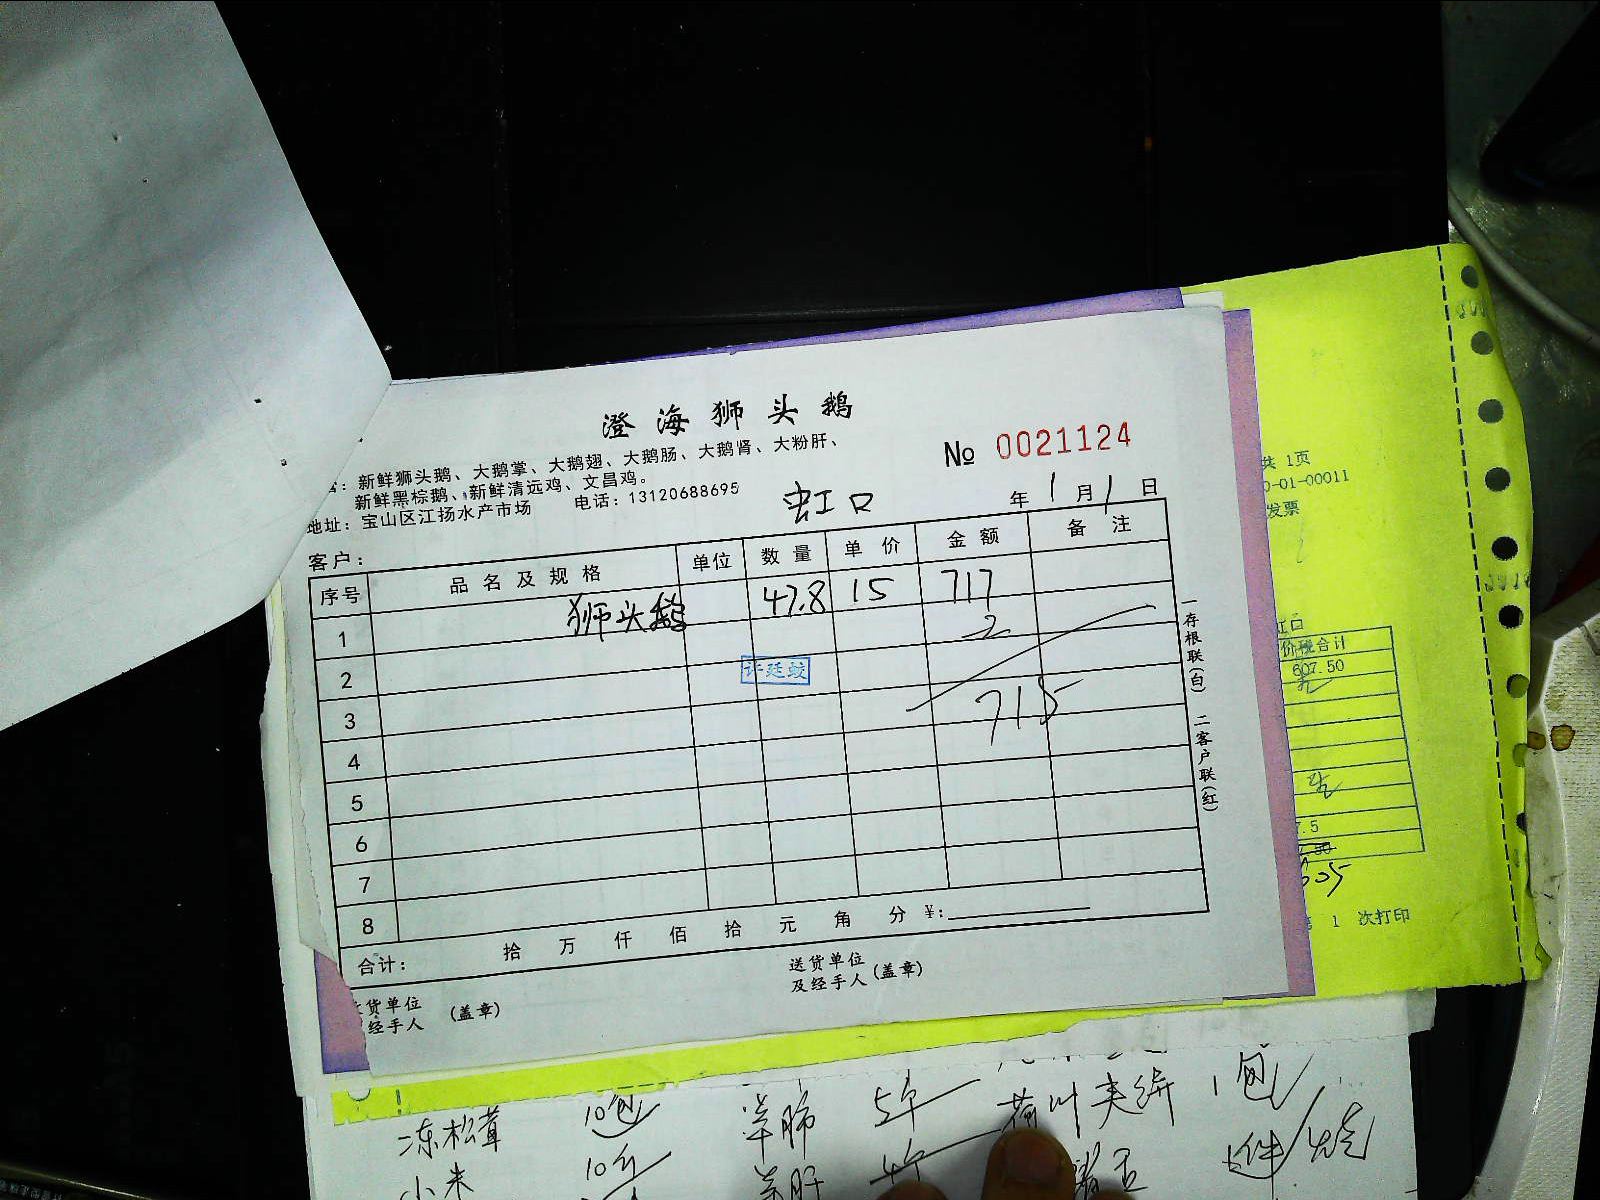 澄海狮头鹅
：新鲜狮头鹅、大鹅掌、大鹅翅、大鹅肠、大鹅肾、大粉肝、
新鲜黑棕鹅、新鲜清远鸡、文昌鸡。
地址：宝山区江扬水产市场 电话：13120688695
№ 0021124
虹口
年 1 月 1 日
客户：
序号 品名及规格 单位 数量 单价 金额 备注
1 狮头鹅 47.8 15 717
2 2
许廷蛟
3 715
4
5
6
7
8
合计： 拾 万 仟 佰 拾 元 角 分 ¥:
货单位
经手人 (盖章)
送货单位
及经手人 (盖章)
一存根联(白) 二客户联(红)
共 1页
0-01-00011
发票
虹口
价税合计
607.50
7.5
605
1 次打印
冻松茸 10包
小米 10斤
5斤
荷叶夹饼 1包